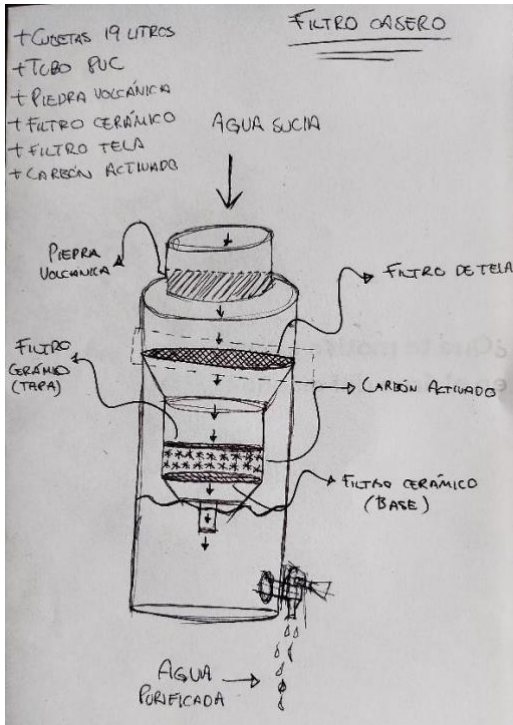 FILTRO CASERO
+ CUBETAS 19 LITROS
+ TUBO PVC
+ PIEDRA VOLCÁNICA
+ FILTRO CERÁMICO
+ FILTRO TELA
+ CARBÓN ACTIVADO
AGUA SUCIA
PIEDRA
VOLCANICA
FILTRO DE TELA
FILTRO
CERÁMICO
(TAPA)
CARBÓN ACTIVADO
FILTRO CERÁMICO
(BASE)
AGUA
PURIFICADA